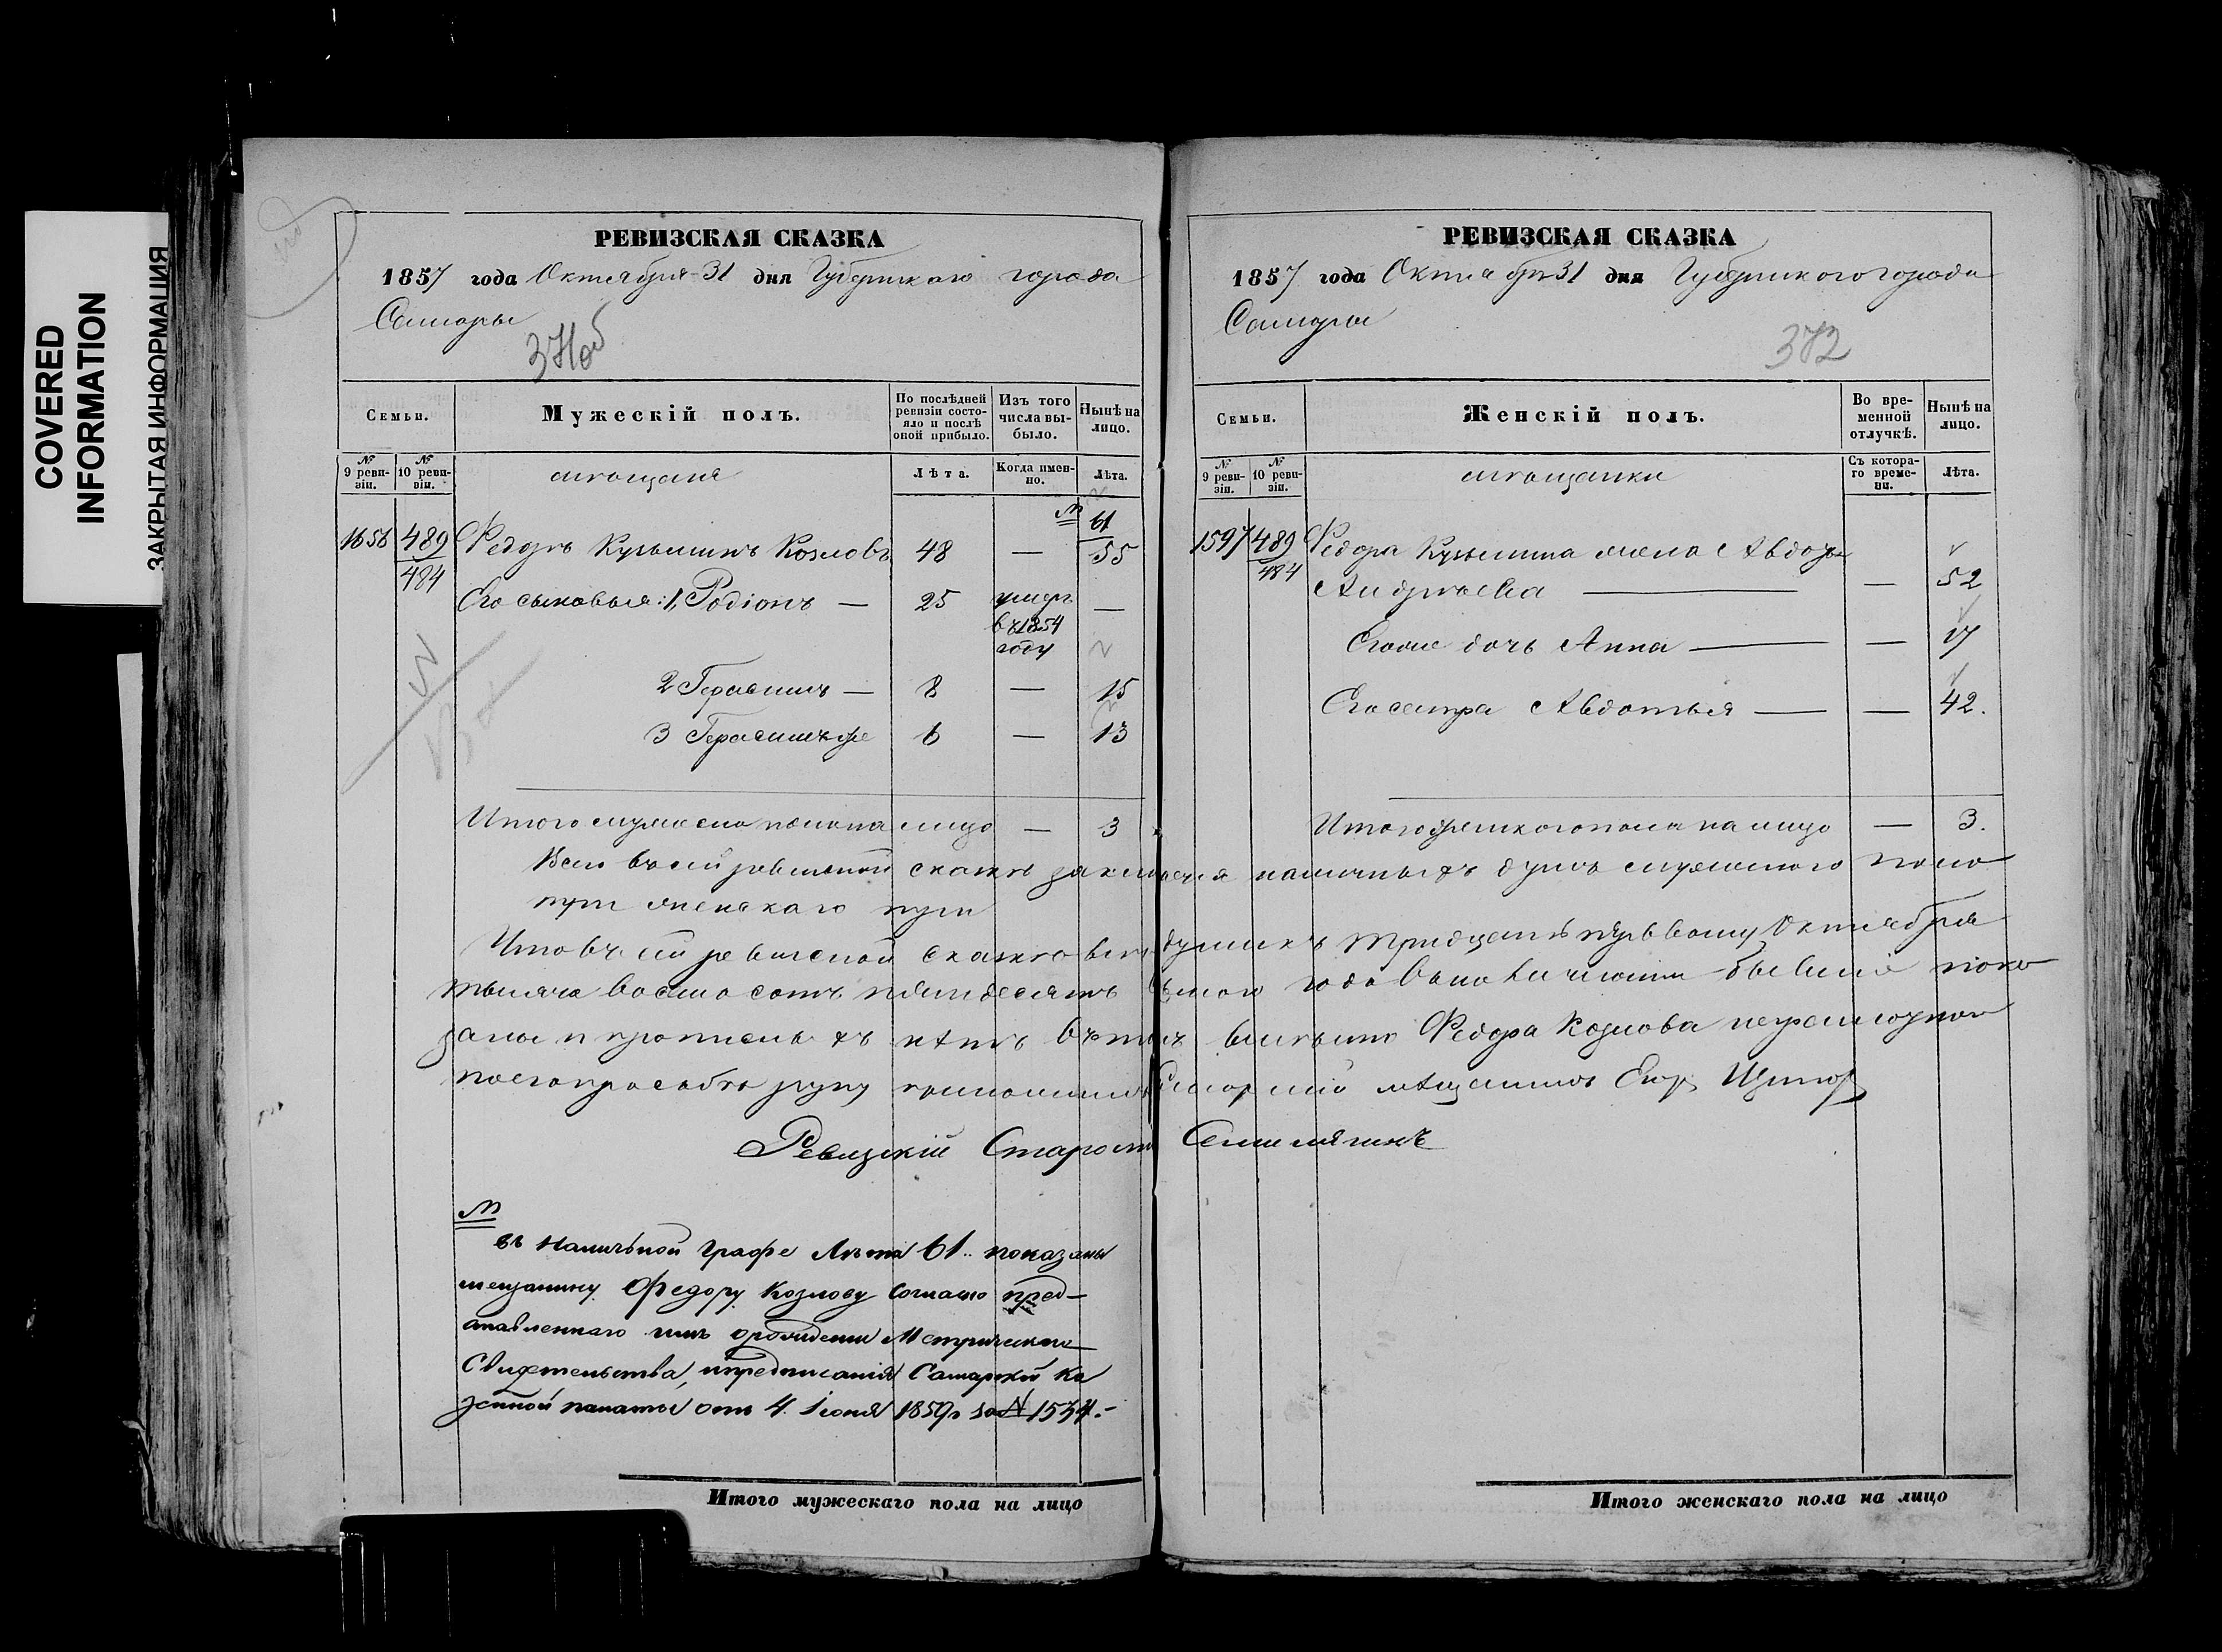 COVERED
INFORMATION
ЗАКРЫТАЯ ИНФОРМАЦИЯ
РЕВИЗСКАЯ СКАЗКА
1857 года Октября 31 дня Губернскаго города
Самары
371об
Семьи.
Мужескій полъ.
По послѣдней ревизіи состояло и послѣ оной прибыло.
Изъ того числа выбыло.
Нынѣ на лицо.
№ 9 ревизіи.
№ 10 ревизіи.
мѣщане
Лѣта.
Когда именно.
Лѣта.
№ 61
1656 489 Федоръ Кузьминъ Козловъ 48 — 55
484
Его сыновья: 1, Родіонъ — 25 умеръ —
въ 1854
году
2 Герасимъ — 8 — 15
3 Герасимъ же 6 — 13
Итого мужеска пола на лицо — 3
РЕВИЗСКАЯ СКАЗКА
1857 года Октября 31 дня Губернскаго города
Самары
372
Семьи.
Женскій полъ.
Во временной отлучкѣ.
Нынѣ на лицо.
№ 9 ревизіи.
№ 10 ревизіи.
мѣщанки
Съ котораго времени.
Лѣта.
1597 489 Федора Кузьмина жена Авдотья
484 Андрѣева — — 52
Егоже дочь Анна — — 17
Его сестра Авдотья — — 42.
Итого женскаго пола на лицо — 3.
Всего въ сей ревизской сказкѣ заключается наличныхъ душъ мужескаго пола
три женскаго три
Что въ сей ревизской сказкѣ всѣ души къ тридцать первому Октября
тысяча восмьсотъ пятьдесятъ седьмого года въ наличности бывшіе пока
заны и прописныхъ нѣтъ въ томъ вмѣсто Федора Козлова неграмотнаго
по его прозьбѣ руку приложилъ Самарскій мѣщанинъ Егор
Ревизскій Староста
№
въ Наличной графе Лѣта 61 показаны
мещанину Федору Козлову согласно пред-
ставленнаго имъ о рожденіи Метрическаго
Свидетельства, и предписанія Самарской Ка
зенной палаты отъ 4 Іюня 1859 г за № 1534.-
Итого мужескаго пола на лицо
Итого женскаго пола на лицо